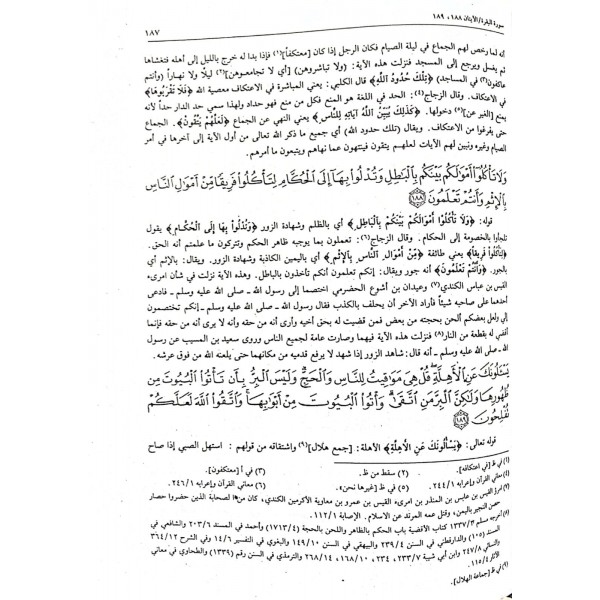 سورة البقرة/الآيتان ١٨٨، ١٨٩
١٨٧
أنه لما رخص لهم الجماع في ليلة الصيام فكان الرجل إذا كان [معتكفاً](١) فإذا بدا له خرج بالليل إلى أهله فتغشاها
ثم يغسل ويرجع إلى المسجد فنزلت هذه الآية: (ولا تباشروهن) [أي لا تجامعوهن](٢) ليلاً ولا نهاراً (وأنتم
عاكفون)(٣) في المساجد) ﴿تِلْكَ حُدُودُ اللَّهِ﴾ قال الكلبي: يعني المباشرة في الاعتكاف معصية الله ﴿فَلَا تَقْرَبُوهَا﴾
في الاعتكاف. وقال الزجاج(٤): الحد في اللغة هو المنع فكل من منع فهو حداد ولهذا سمي حد الدار حداً لأنه
يمنع [الغير عن](٥) دخولها. ﴿كَذَلِكَ يُبَيِّنُ اللَّهُ آيَاتِهِ لِلنَّاسِ﴾ يعني النهي عن الجماع ﴿لَعَلَّهُمْ يَتَّقُونَ﴾. الجماع
حتى يفرغوا من الاعتكاف. ويقال (تلك حدود الله) أي جميع ما ذكر الله تعالى من أول الآية إلى آخرها في أمر
الصيام وغيره ونبين لهم الآيات لعلهم يتقون فينتهون عما نهاهم ويتبعون ما أمرهم.
وَلَا تَأْكُلُوٓا۟ أَمْوَٰلَكُم بَيْنَكُم بِٱلْبَٰطِلِ وَتُدْلُوا۟ بِهَآ إِلَى ٱلْحُكَّامِ لِتَأْكُلُوا۟ فَرِيقًا مِّنْ أَمْوَٰلِ ٱلنَّاسِ
بِٱلْإِثْمِ وَأَنتُمْ تَعْلَمُونَ ١٨٨
قوله: ﴿وَلَا تَأْكُلُوا أَمْوَالَكُمْ بَيْنَكُمْ بِالْبَاطِلِ﴾ أي بالظلم وشهادة الزور ﴿وَتُدْلُوا بِهَا إِلَى الْحُكَّامِ﴾ يقول
تلجأوا بالخصومة إلى الحكام. وقال الزجاج(٦): تعملون بما يوجبه ظاهر الحكم وتتركون ما علمتم أنه الحق.
﴿لِتَأْكُلُوا فَرِيقاً﴾ يعني طائفة ﴿مِنْ أَمْوَالِ النَّاسِ بِالْإِثْمِ﴾ أي باليمين الكاذبة وشهادة الزور. ويقال: بالإثم أي
بالجور. ﴿وَأَنْتُمْ تَعْلَمُونَ﴾ أنه جور ويقال: إنكم تعلمون أنكم تأخذون بالباطل. وهذه الآية نزلت في شأن امرىء
القيس بن عباس الكندي(٧) وعبدان بن أشوع الحضرمي اختصما إلى رسول الله ـ صلى الله عليه وسلم ـ فادعى
أحدهما على صاحبه شيئاً فأراد الآخر أن يحلف بالكذب فقال رسول الله ـ صلى الله عليه وسلم ـ إنكم تختصمون
إلي ولعل بعضكم ألحن بحجته من بعض فمن قضيت له بحق أخيه وأرى أنه من حقه وأنه لا يرى أنه من حقه فإنما
أقضي له بقطعة من النار(٨) فنزلت هذه الآية فيهما وصارت عامة لجميع الناس وروى سعيد بن المسيب عن رسول
الله ـ صلى الله عليه وسلم ـ أنه قال: شاهد الزور إذا شهد لا يرفع قدميه من مكانهما حتى يلعنه الله من فوق عرشه.
يَسْـَٔلُونَكَ عَنِ ٱلْأَهِلَّةِ قُلْ هِىَ مَوَٰقِيتُ لِلنَّاسِ وَٱلْحَجِّ وَلَيْسَ ٱلْبِرُّ بِأَن تَأْتُوا۟ ٱلْبُيُوتَ مِن
ظُهُورِهَا وَلَٰكِنَّ ٱلْبِرَّ مَنِ ٱتَّقَىٰ وَأْتُوا۟ ٱلْبُيُوتَ مِنْ أَبْوَٰبِهَا وَٱتَّقُوا۟ ٱللَّهَ لَعَلَّكُمْ
تُفْلِحُونَ ١٨٩
قوله تعالى: ﴿يَسْأَلُونَكَ عَنِ الْأَهِلَّةِ﴾ الأهلة: [جمع هلال](٩) واشتقاقه من قولهم: استهل الصبي إذا صاح
(١) في ظ [في اعتكافه].
(٢) سقط من ظ.
(٣) في أ [معتكفون].
(٤) معاني القرآن وإعرابه ٢٤٤/١.
(٥) في ظ [غيرها نحن].
(٦) معاني القرآن وإعرابه ٢٤٦/١.
(٧) امرؤ القيس بن عباس بن المنذر بن امرىء القيس بن عمرو بن معاوية الأكرمين الكندي، كان من الصحابة الذين حضروا حصار
حصن النجير باليمن، وقتل عمه المرتد عن الاسلام. الإصابة ١١٢/١.
(٨) أخرجه مسلم ١٣٣٧/٣ كتاب الأقضية باب الحكم بالظاهر واللحن بالحجة (١٧١٣/٤) وأحمد في المسند ٢٠٣/٦ والشافعي في
المسند (١٠٥) والدارقطني في السنن ٢٣٩/٤ والبيهقي في السنن ١٤٩/١٠ والبغوي في التفسير ١٤٦/٦ وفي الشرح ٣٦٤/١٢
والنسائي ٢٤٧/٨ وابن أبي شيبة ٢٣٣/٧، ٢٣٤، ١٦٨/١٠، ٢٦٨/١٤ والترمذي في السنن رقم (١٣٣٩) والطحاوي في معاني
الآثار ١١٥/٤.
(٩) في ظ [جماعة الهلال].